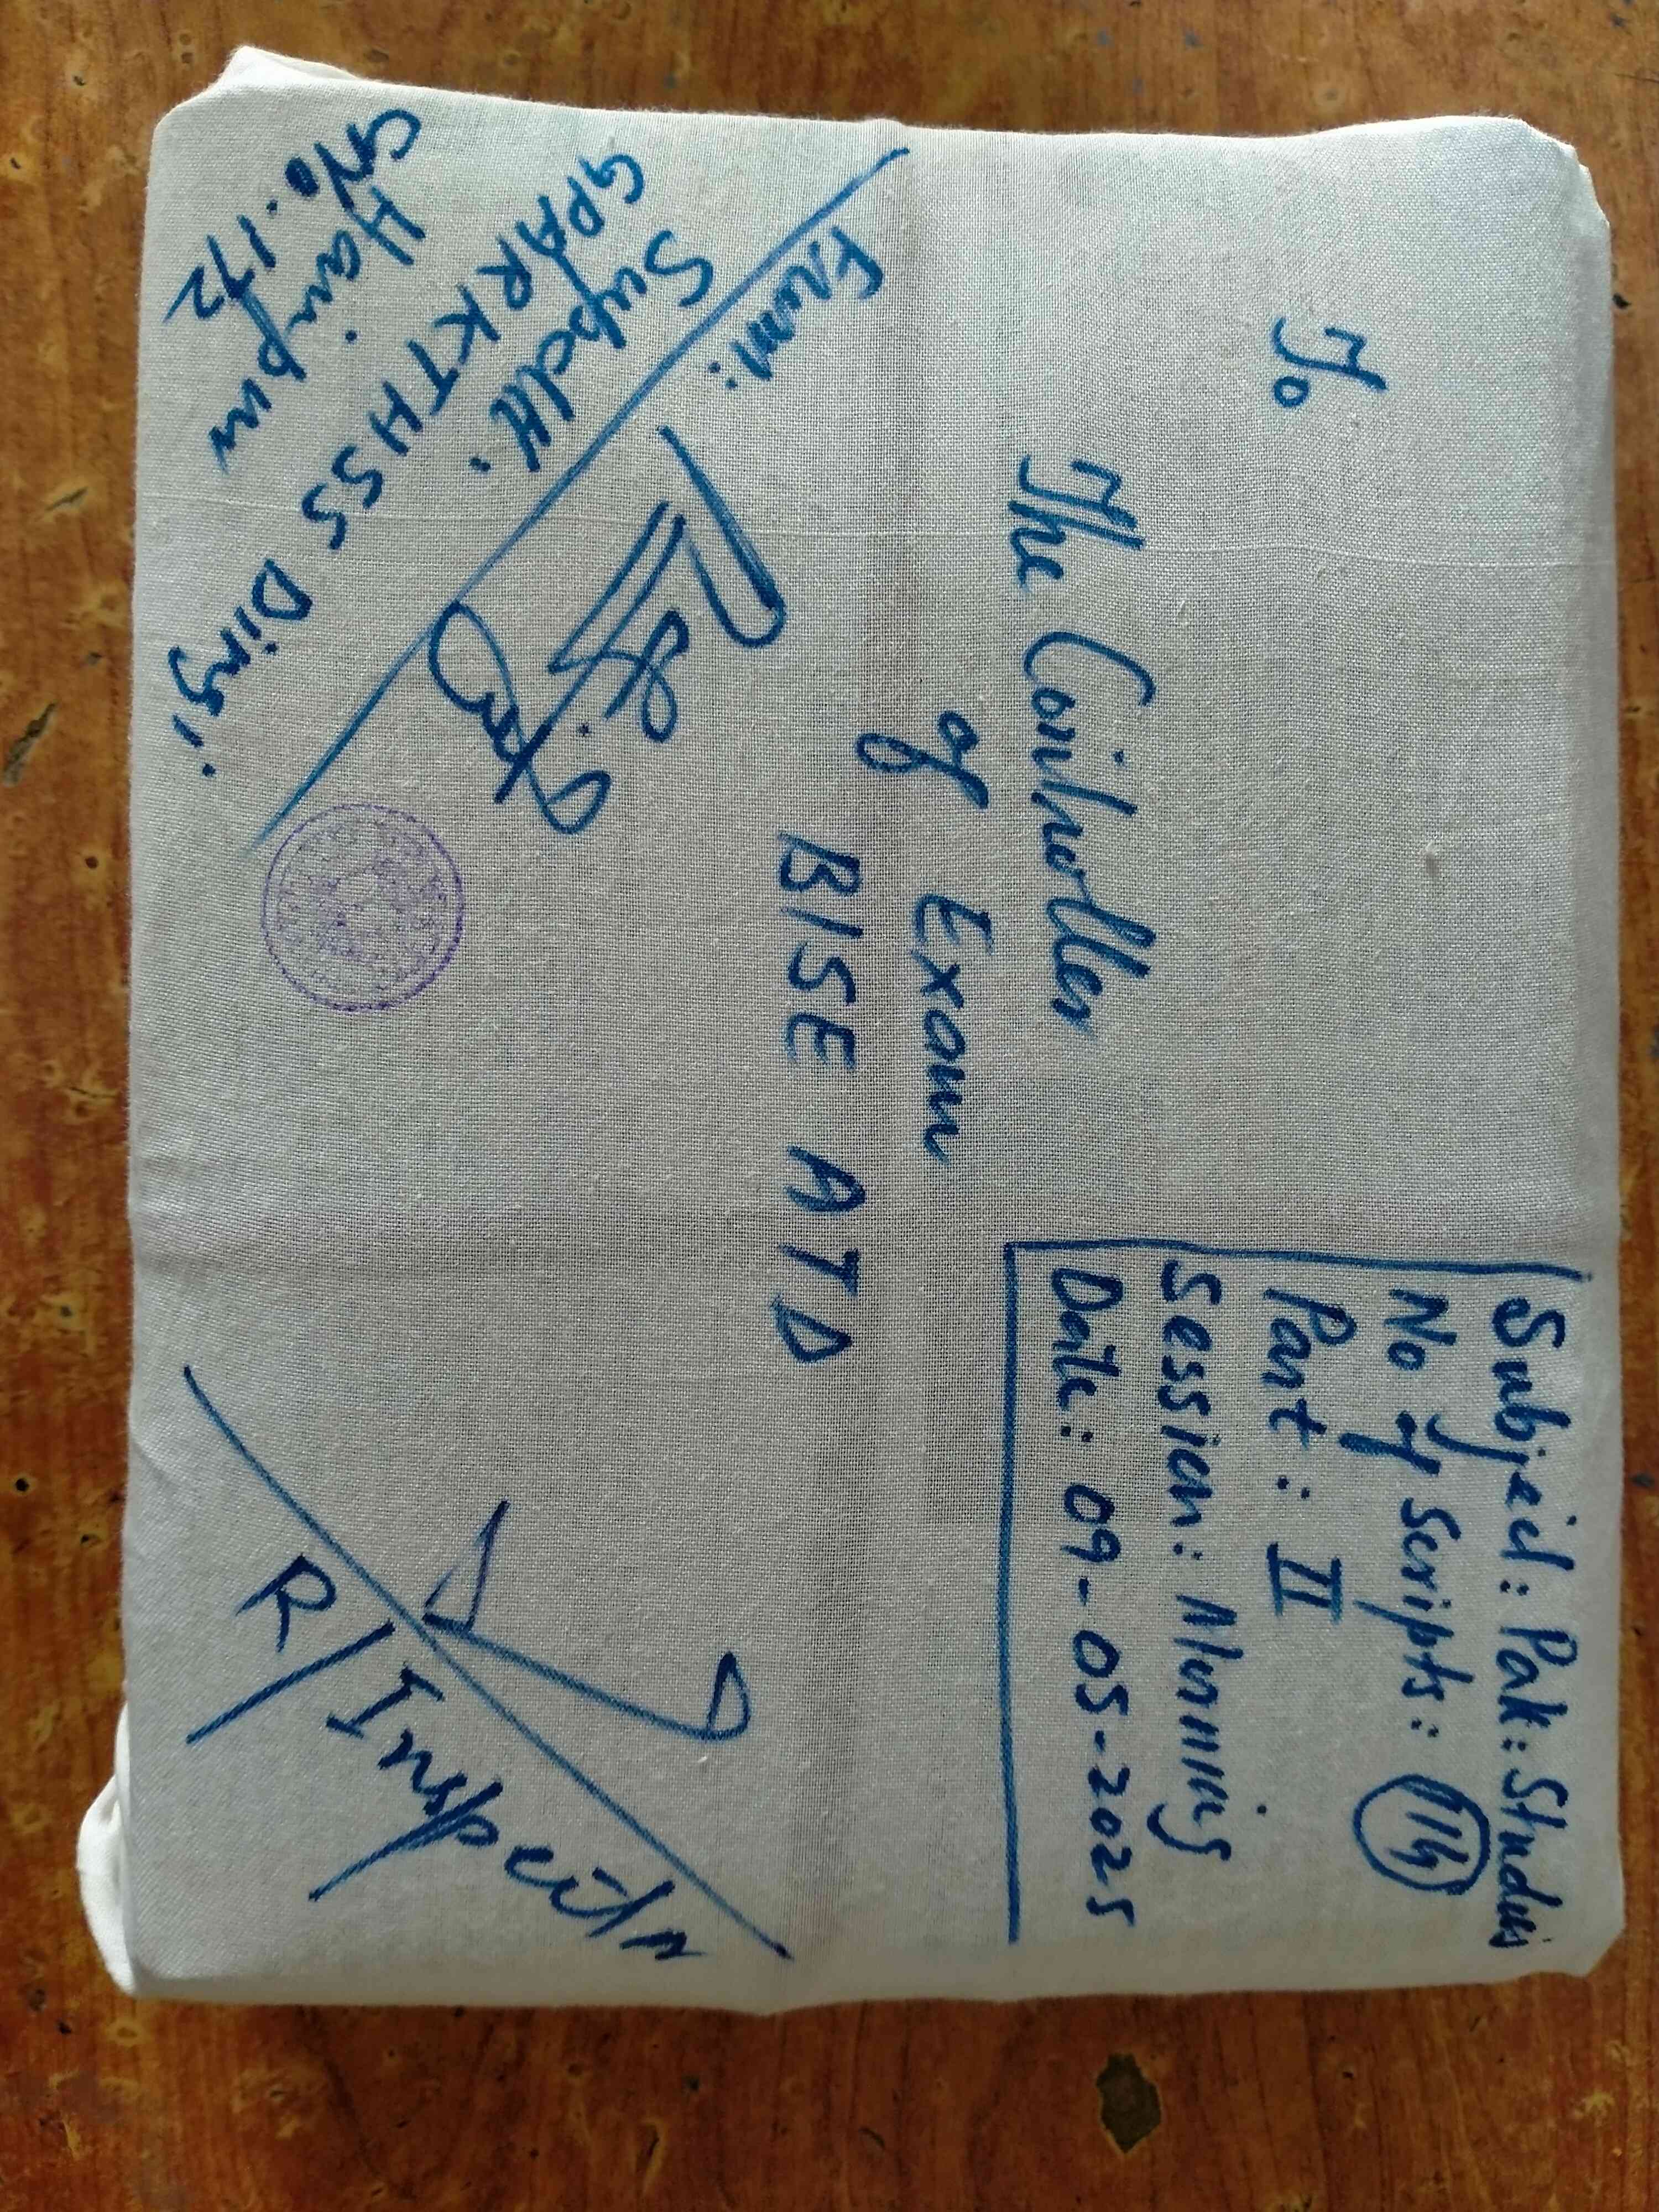 Subject: Pak: Studies
No of Scripts: 114
Part: II
Session: Morning
Date: 09-05-2025
To
The Controller
of Exam
BISE ATD
From:
Supdtt:
GPARKTHSS Dingi
Haripur
172
R/Inspector